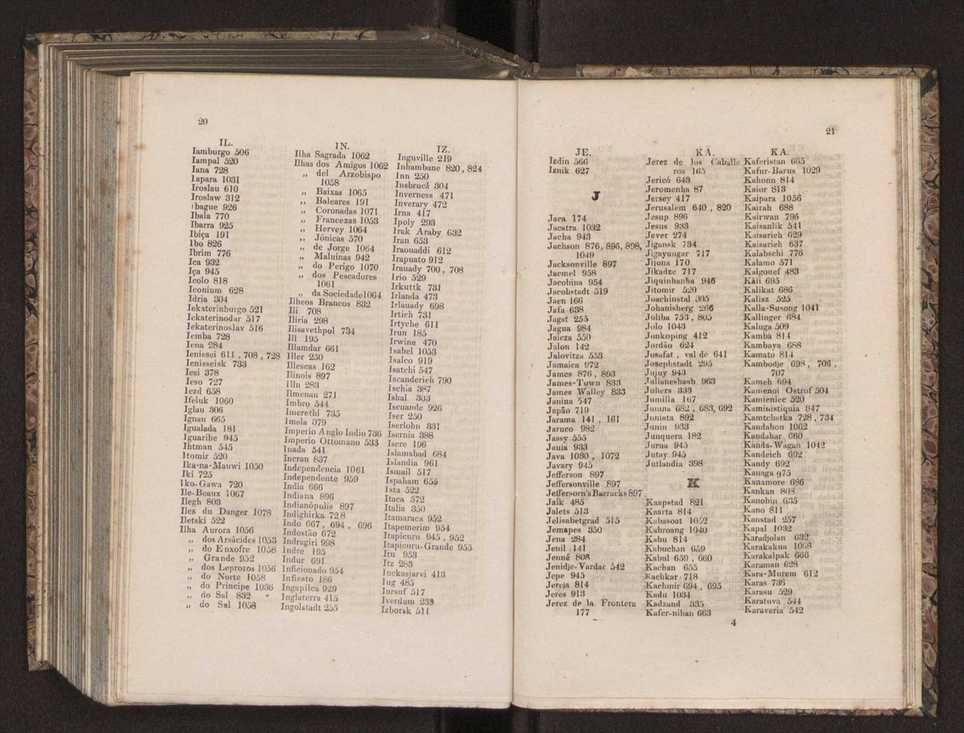 20
IL.
Iamburgo 506
Iampal 520
Iana 728
Iapara 1031
Iroslau 610
Iroslaw 312
Ibague 926
Ibala 770
Ibarra 925
Ibiça 191
Ibo 826
Ibrim 776
Ica 932
Iça 945
Icolo 818
Iconium 628
Idria 304
Iekaterinburgo 521
Iekaterinodar 517
Iekaterinoslav 516
Iemba 728
Iena 284
Ienissei 611, 708, 728
Ienisseisk 733
Iesi 378
Ieso 727
Iezd 658
Ifeluk 1060
Iglau 306
Ignau 665
Igualada 181
Iguaribe 945
Ihtman 545
Itomir 520
Ika-na-Mauwi 1050
Iki 725
Iko-Gawa 720
Ile-Beaux 1067
Ilegh 803
Iles du Danger 1078
Iletski 522
Ilha Aurora 1056
„ dos Arsàcides 1053
„ do Enxofre 1056
„ Grande 952
„ dos Leprozos 1056
„ do Norte 1058
„ do Principe 1036
„ do Sal 832
„ do Sal 1058
IN.
Ilha Sagrada 1062
Ilhas dos Amigos 1062
„ del Arzobispo
1058
„ Baixas 1065
„ Baleares 191
„ Coronadas 1071
„ Francezas 1053
„ Hervey 1064
„ Jónicas 570
„ de Jorge 1064
„ Maluinas 942
„ do Perigo 1070
„ dos Pescadores
1061
„ da Sociedade 1064
Ilheos Brancos 832
Ili 708
Iliria 298
Ilisavethpol 734
Ill 195
Illamdar 661
Iller 250
Illescas 162
Ilinois 897
Illu 283
Ilmenau 271
Imbro 544
Imerethi 735
Imola 379
Imperio Anglo Indio 736
Imperio Ottomano 533
Inada 541
Incran 837
Independencia 1061
Independente 959
India 666
Indiana 896
Indianápolis 897
Indighirka 728
Indo 667, 694, 696
Indostão 672
Indragiri 998
Indre 195
Indur 691
Inficionado 954
Infiesto 186
Ingapilca 929
Inglaterra 415
Ingolstadt 255
IZ.
Inguville 219
Inhambane 820, 824
Inn 250
Insbruck 304
Inverness 471
Inverary 472
Irna 417
Ipoly 293
Irak Araby 632
Iran 653
Iraouaddi 612
Irapuato 912
Irauady 700, 708
Irio 529
Irkuttk 731
Irlanda 473
Irlauady 698
Irtich 731
Irtyche 611
Irun 185
Irwine 470
Isabel 1053
Isalco 919
Isatchi 547
Iscanderieh 790
Ischia 387
Ishal 303
Iscuande 926
Iser 250
Iserlohn 331
Isernia 388
Isere 196
Islamabad 684
Islandia 961
Ismail 517
Ispaham 655
Ista 522
Itaca 572
Italia 350
Itamaraca 952
Itapemerim 954
Itapicuro 945, 952
Itapicuru-Grande 955
Itu 953
Itz 283
Iuckasjarvi 413
Iug 485
Iursuf 517
Iverdum 233
Izborsk 511
21
JE.
Izdin 566
Iznik 627
J
Jaca 174
Jacatra 1032
Jacha 943
Jachson 876, 896, 898,
1049
Jacksonville 897
Jacmel 958
Jacobina 954
Jacobstadt 519
Jaen 166
Jafa 638
Jagst 255
Jagua 984
Jaicza 550
Jalon 142
Jalovitza 553
Jamaica 972
James 876, 893
James-Tuwn 833
James Walley 833
Janina 547
Japão 719
Jarama 141, 161
Jaruco 982
Jassy 555
Jauia 933
Java 1030, 1072
Javary 945
Jefferson 897
Jeffersonville 897
Jefferson's Barracks 897
Jalk 485
Jalets 513
Jelisabetgrad 515
Jemapes 350
Jena 284
Jenil 141
Jenné 808
Jenidje-Vardac 542
Jepe 945
Jercja 814
Jeres 913
Jerez de la Frontera
177
KA.
Jerez de los Caballe
ros 165
Jericó 643
Jeromenha 87
Jersey 417
Jerusalem 640, 820
Jesup 896
Jesus 933
Jever 274
Jigansk 734
Jigayanger 717
Jijona 170
Jikadze 717
Jiquinhanha 946
Jitomir 520
Joachinstal 305
Johanisberg 266
Joliba 753, 805
Jolo 1043
Jonkoping 412
Jordão 624
Josafat, val de 641
Josephstadt 295
Jujuy 943
Julianeshasb 963
Juliers 333
Jumilla 167
Jumna 682, 683, 692
Junista 892
Junin 933
Junquera 182
Jurua 945
Jutay 945
Jutlandia 398
K
Kaapstad 821
Kaarta 814
Kabassout 1052
Kabroang 1040
Kabu 814
Kabuchan 659
Kabul 659, 660
Kachan 655
Kachkar 718
Kachmir 694, 695
Kadu 1034
Kadzand 335
Kafer-nihan 663
4
KA.
Kaferistan 665
Kafur-Barus 1029
Kahom 814
Kaior 813
Kaipara 1056
Kairah 688
Kairwan 796
Kaisanlik 541
Kaisarieh 629
Kaisarieh 637
Kalabschi 776
Kalamo 571
Kalgouef 483
Kali 695
Kalikat 686
Kalisz 525
Kalla-Susong 1041
Kallinger 684
Kaluga 509
Kamba 814
Kambaya 688
Kamato 814
Kambodje 698, 706,
707
Kameh 694
Kamenoi Ostrof 504
Kamieniec 520
Kaministiquia 847
Kamtchatka 728, 734
Kandabon 1002
Kandahar 660
Kanda-Wagan 1042
Kandeich 692
Kandy 692
Kanaga 975
Kanamore 686
Kankan 808
Kanobin 635
Kano 811
Kanstad 257
Kapal 1032
Karadjolan 632
Karakakua 1068
Karakalpak 666
Karaman 628
Kara-Murem 612
Karas 736
Karasu 529
Karatova 544
Karaveria 542